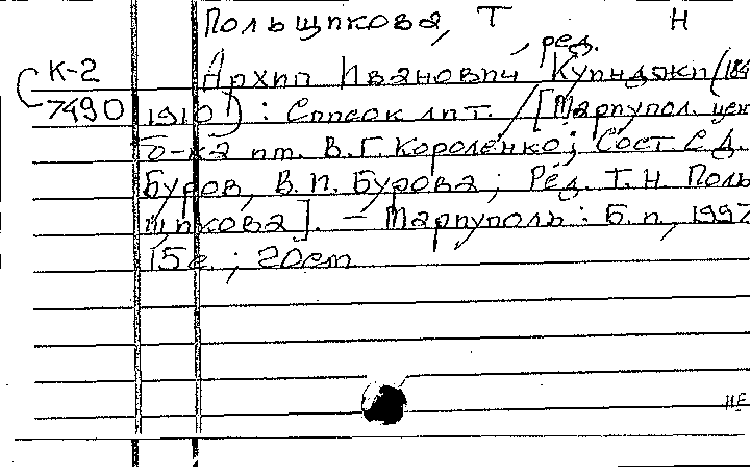 Польщикова, Т Н
, ред.
К-2 Архип Иванович Куинджи (184
7490 1910) : Список лит. / [Мариупол. цен
б-ка им. В.Г. Короленко; Сост. С.Д.
Буров, В.П. Бурова; Ред. Т.Н. Поль
щикова]. — Мариуполь : Б. и., 1997
15 с. ; 20 cm
НЕ